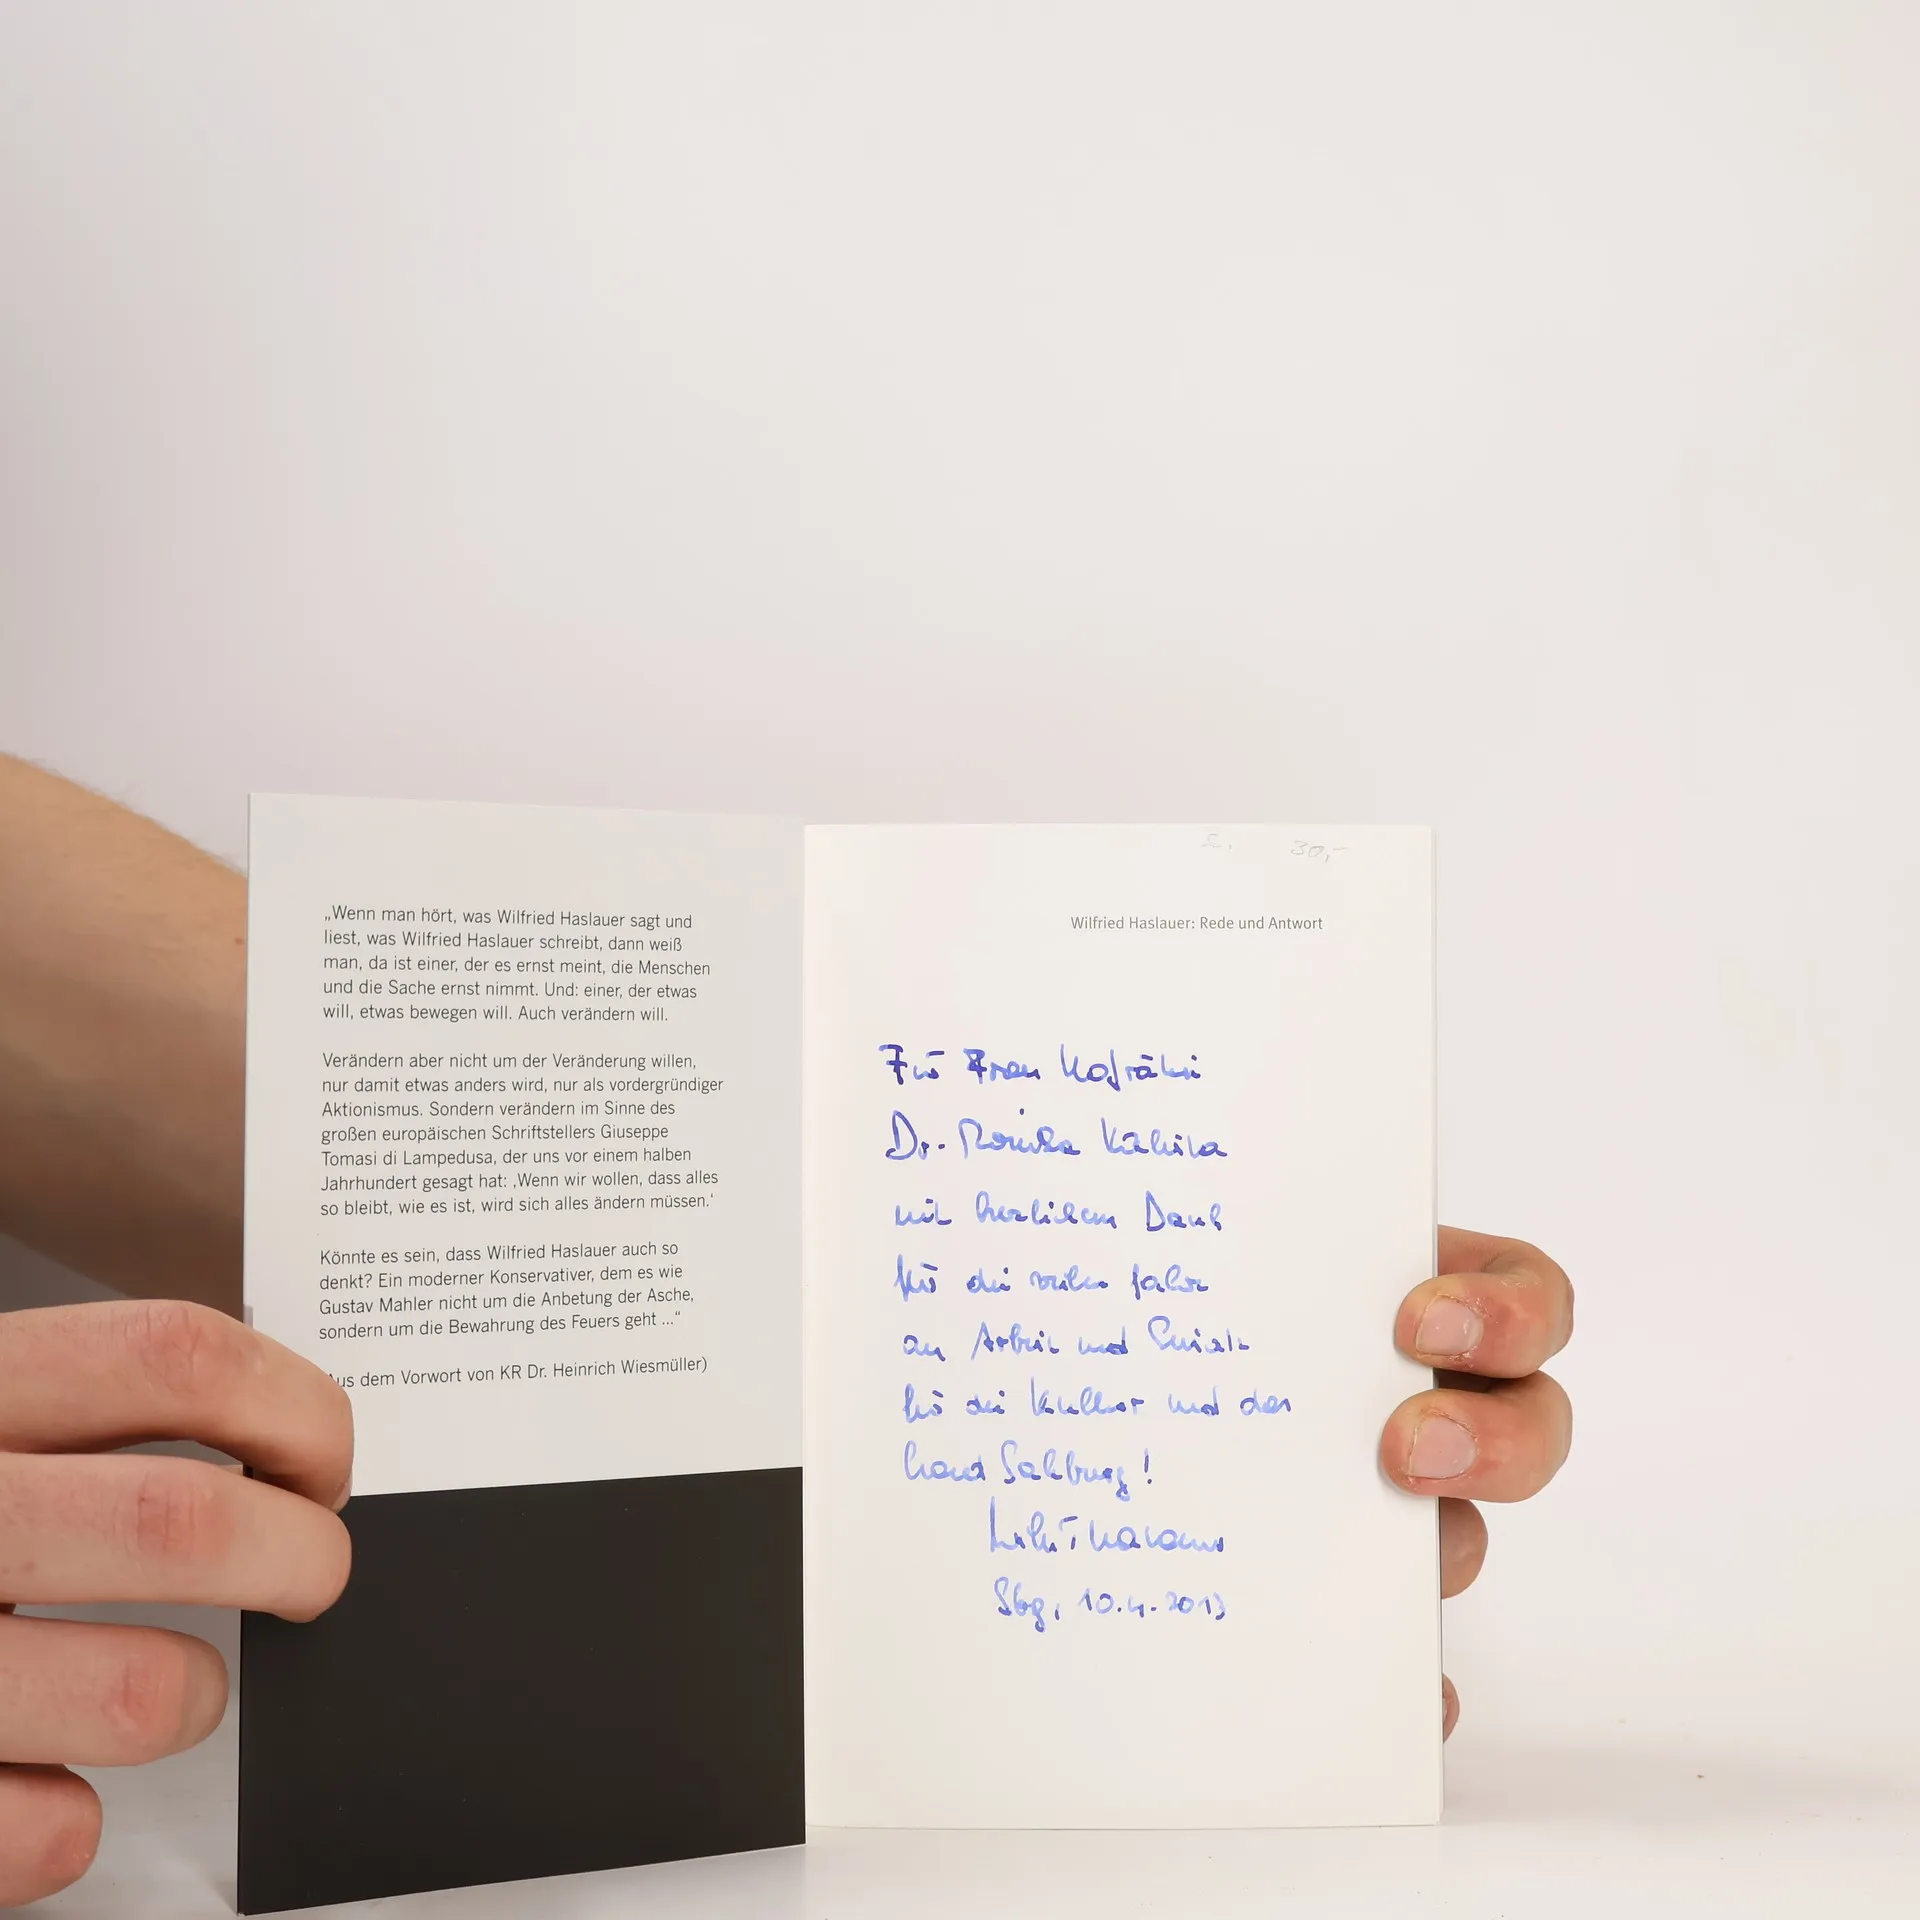 „Wenn man hört, was Wilfried Haslauer sagt und
liest, was Wilfried Haslauer schreibt, dann weiß
man, da ist einer, der es ernst meint, die Menschen
und die Sache ernst nimmt. Und: einer, der etwas
will, etwas bewegen will. Auch verändern will.
Verändern aber nicht um der Veränderung willen,
nur damit etwas anders wird, nur als vordergründiger
Aktionismus. Sondern verändern im Sinne des
großen europäischen Schriftstellers Giuseppe
Tomasi di Lampedusa, der uns vor einem halben
Jahrhundert gesagt hat: ‚Wenn wir wollen, dass alles
so bleibt, wie es ist, wird sich alles ändern müssen.‘
Könnte es sein, dass Wilfried Haslauer auch so
denkt? Ein moderner Konservativer, dem es wie
Gustav Mahler nicht um die Anbetung der Asche,
sondern um die Bewahrung des Feuers geht ...“
us dem Vorwort von KR Dr. Heinrich Wiesmüller)
30,-
Wilfried Haslauer: Rede und Antwort
Für Frau Hofrätin
Dr. Monika
mit herzlichem Dank
für die vielen Jahre
an Arbeit und Einsatz
für die Kultur und das
Land Salzburg!
Sbg, 10.4.2013